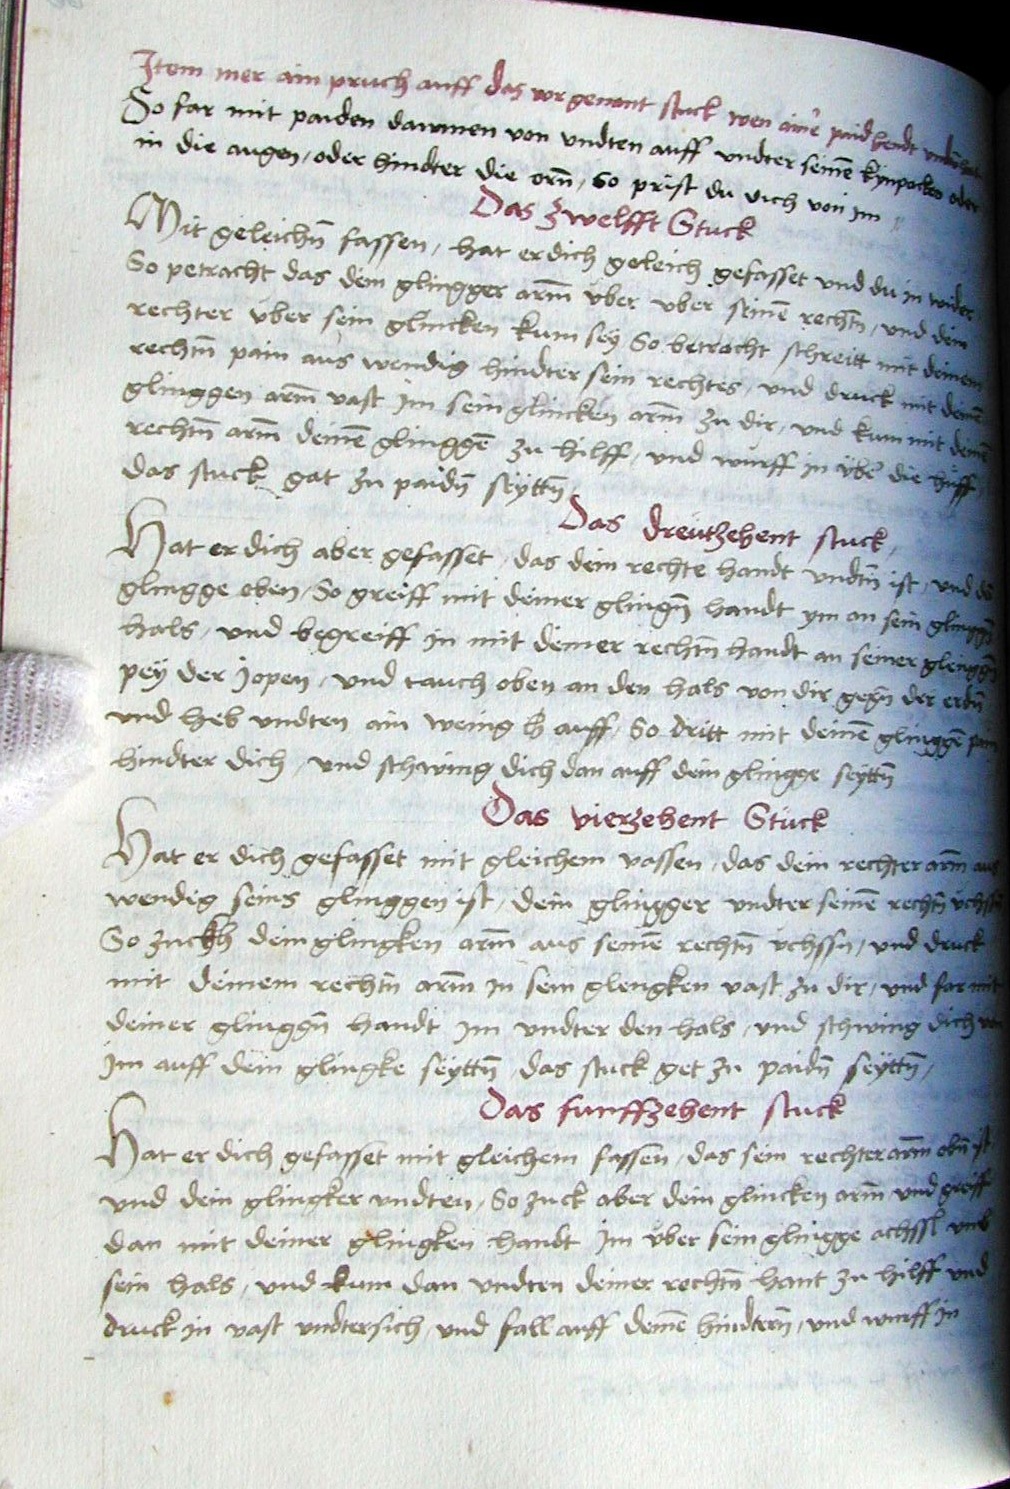 Item mer ain pruch auff das vorgenant stuck wen ainer paid hendt
So far mit paiden daumen von undten auff undter seinē kynpacken oder
in die augen, oder hindter die orñ, so prist du dich von im
Das zwelfft Stuck
Mit geleichñ fassen, hat er dich geleich gefasset und du in wider
So petracht das dein glingger arm̄ uber uber seinē rechtñ, und dein
rechter uber sein glincken kum sey So betracht schreitt mit deinem
rechtñ pain aus wendig hindter sein rechtes, und druck mit deinē
glinggen arm̄ vast im sein glincken arm̄ zu dir, und kum mit deinē
rechtñ arm̄ deinē glinggē zu hilff, und wurff in uber die huff,
das stuck gat zu paidñ seyttñ,
Das dreutzehent stuck,
Hat er dich aber gefasset, das dein rechte handt undtñ ist, und die
glingge oben, So greiff mit deiner glingñ handt ym an sein glinggñ
hals, und begreiff in mit deiner rechtñ handt an seiner glenggñ
pey der jopen, und tauch oben an den hals von dir gegñ der erdñ
und heb undten ain wenig auff, So dritt mit deinē glinggē pain
hindter dich, und schwing dich dan auff dein glingge seyttñ
Das vierzehent Stuck
Hat er dich gefasset mit gleichem vassen, das dein rechter arm̄ aus
wendig seins glinggen ist, dein glingger undter seinē rechtñ uchsñ
So zuckh dein glingken arm̄ aus seinē rechtñ uchssñ, und druck
mit deinem rechtñ arm̄ in sein glengken vast zu dir, und far mit
deiner glinggñ handt im undter den hals, und schwing dich von
im auff dein glingke seyttñ, das stuck get zu paidñ seyttñ,
Das funffzehent stuck
Hat er dich gefasset mit gleichem fassen, das sein rechter arm̄ obñ ist
und dein glingker undten, So zuck aber dein glincken arm̄ und greiff
dan mit deiner glingken handt im uber sein glingge achssl umb
sein hals, und kum dan undten deiner rechtñ hant zu hilff und
druck in vast undtersich, und fall auff deinē hindterñ, und wurff in